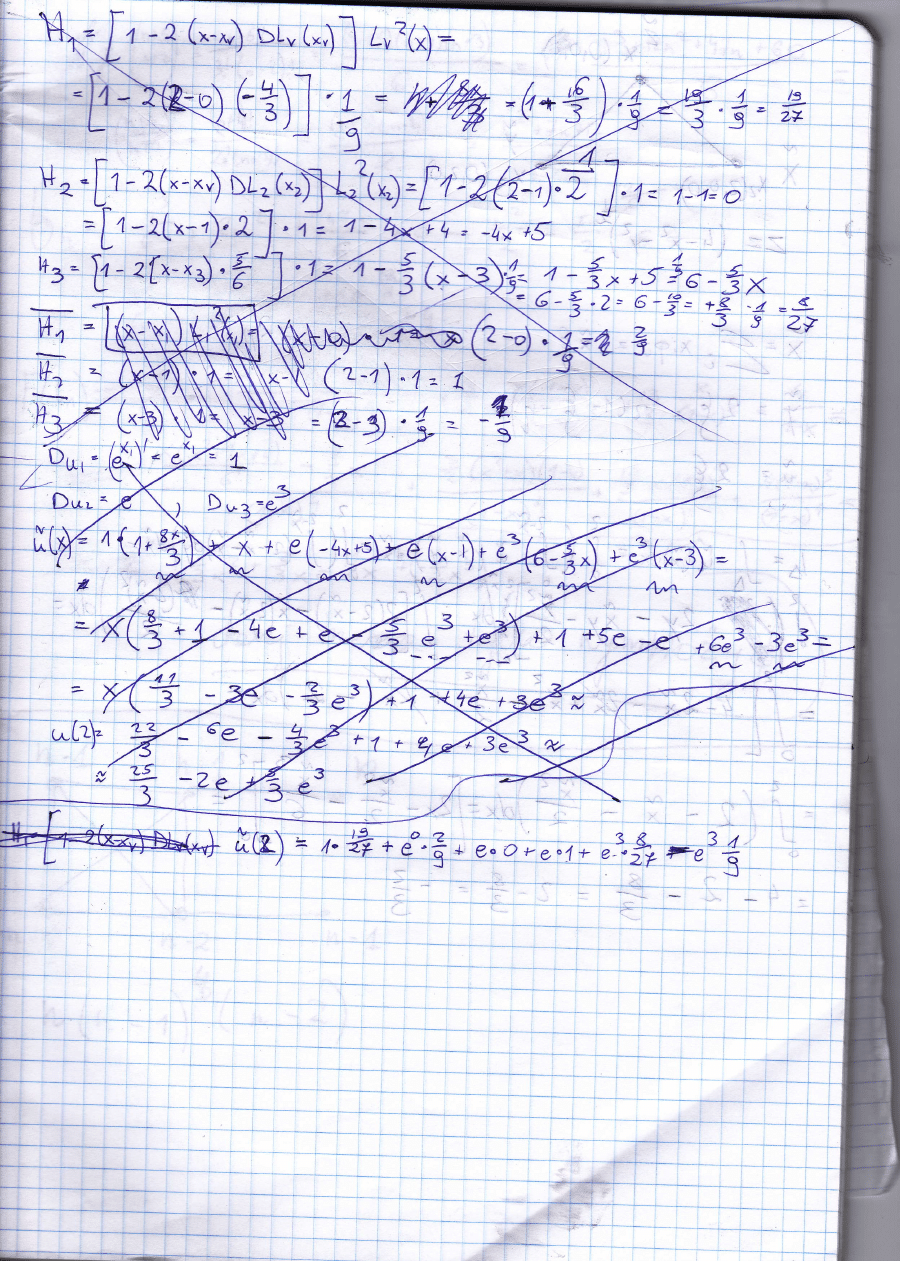 H₁ = [1 - 2(x-xᵥ) DLᵥ(xᵥ)] Lᵥ²(x) =
= [1 - 2(2-0) (-4/3)] · 1/9 = = (1 + 16/3) · 1/9 = 19/3 · 1/9 = 19/27
H₂ = [1 - 2(x-xᵥ) DL₂(x₂)] L₂²(x₂) = [1 - 2(2-1) · 1/2] · 1 = 1-1 = 0
= [1 - 2(x-1) · 2] · 1 = 1 - 4x + 4 = -4x + 5
H₃ = [1 - 2[x-x₃) · 5/6] · 1 = 1 - 5/3 (x-3) · 1/9 = 1 - 5/3 x + 5 = 6 - 5/3 x
= 6 - 5/3 · 2 = 6 - 10/3 = +8/3 · 1/9 = 8/27
H̅₁ = (x-x₁) L₁²(x₁) = (2-0) · 1/9 = 2/9
H̅₂ = (x-1) · 1 = x- (2-1) · 1 = 1
H̅₃ = (x-3) · 1 = x-3 = (2-3) · 1/9 = -1/9
Du₁ = (eˣ¹)' = eˣ¹ = 1
Du₂ = e , Du₃ = e³
ũ(x) = 1 · (1 + 8x/3) + x + e(-4x+5) + e(x-1) + e³(6 - 5/3 x) + e³(x-3) =
= x(8/3 + 1 - 4e + e - 5/3 e³ + e³) + 1 + 5e - e + 6e³ - 3e³ =
= x(11/3 - 3e - 2/3 e³) + 1 + 4e + 3e³ ≈
u(2) = 22/3 - 6e - 4/3 e³ + 1 + 4e + 3e³ ≈
≈ 25/3 - 2e + 5/3 e³
H₁ = [1-2(x-xᵥ) DLᵥ(xᵥ) ũ(2) = 1 · 19/27 + e⁰ · 2/9 + e · 0 + e · 1 + e³ · 8/27 - e³ 1/9